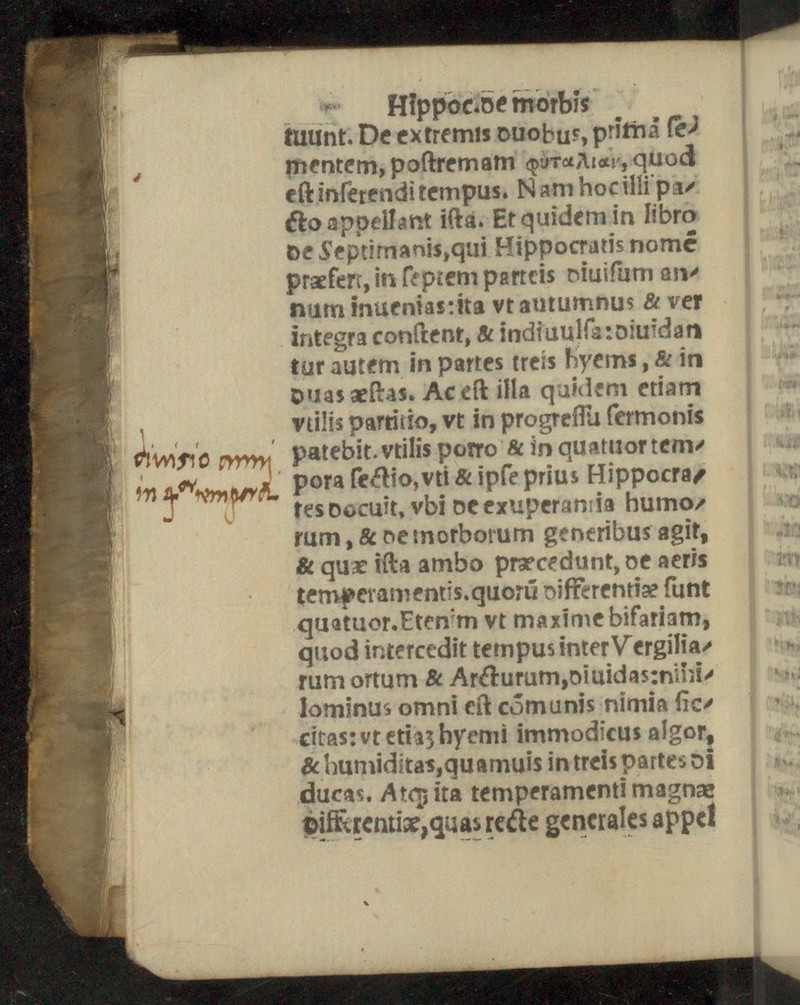 Hippoc.de morbis
tuunt. De extremis duobus, primá ſe⸗
mentem, poſtremam φυταλιαν, quod
eſt inſerendi tempus. Nam hoc illi pa⸗
cto appellant iſta. Et quidem in libro
de Septimanis, qui Hippocratis nomē
præfert, in ſeptem parteis diuiſum an⸗
num inuenias: ita vt autumnus & ver
integra conſtent, & indiuulſa: diuidan
tur autem in partes treis hyems, & in
duas æſtas. Ac eſt illa quidem etiam
vtilis partitio, vt in progreſſu ſermonis
patebit. vtilis porro & in quatuor tem⸗
pora ſectio, vti & ipſe prius Hippocra⸗
tes docuit, vbi de exuperantia humo⸗
rum, & de morborum generibus agit,
& quæ iſta ambo præcedunt, de aeris
temperamentis. quorū differentiæ ſunt
quatuor. Etenim vt maxime bifariam,
quod intercedit tempus inter Vergilia⸗
rum ortum & Arcturum, diuidas: nihi⸗
lominus omni eſt cōmunis nimia ſic⸗
citas: vt etiaꝫ hyemi immodicus algor,
& humiditas, quamuis in treis partes di
ducas. Atqꝫ ita temperamenti magnæ
differentiæ, quas recte generales appel
diuisio anni
in 4or tempora